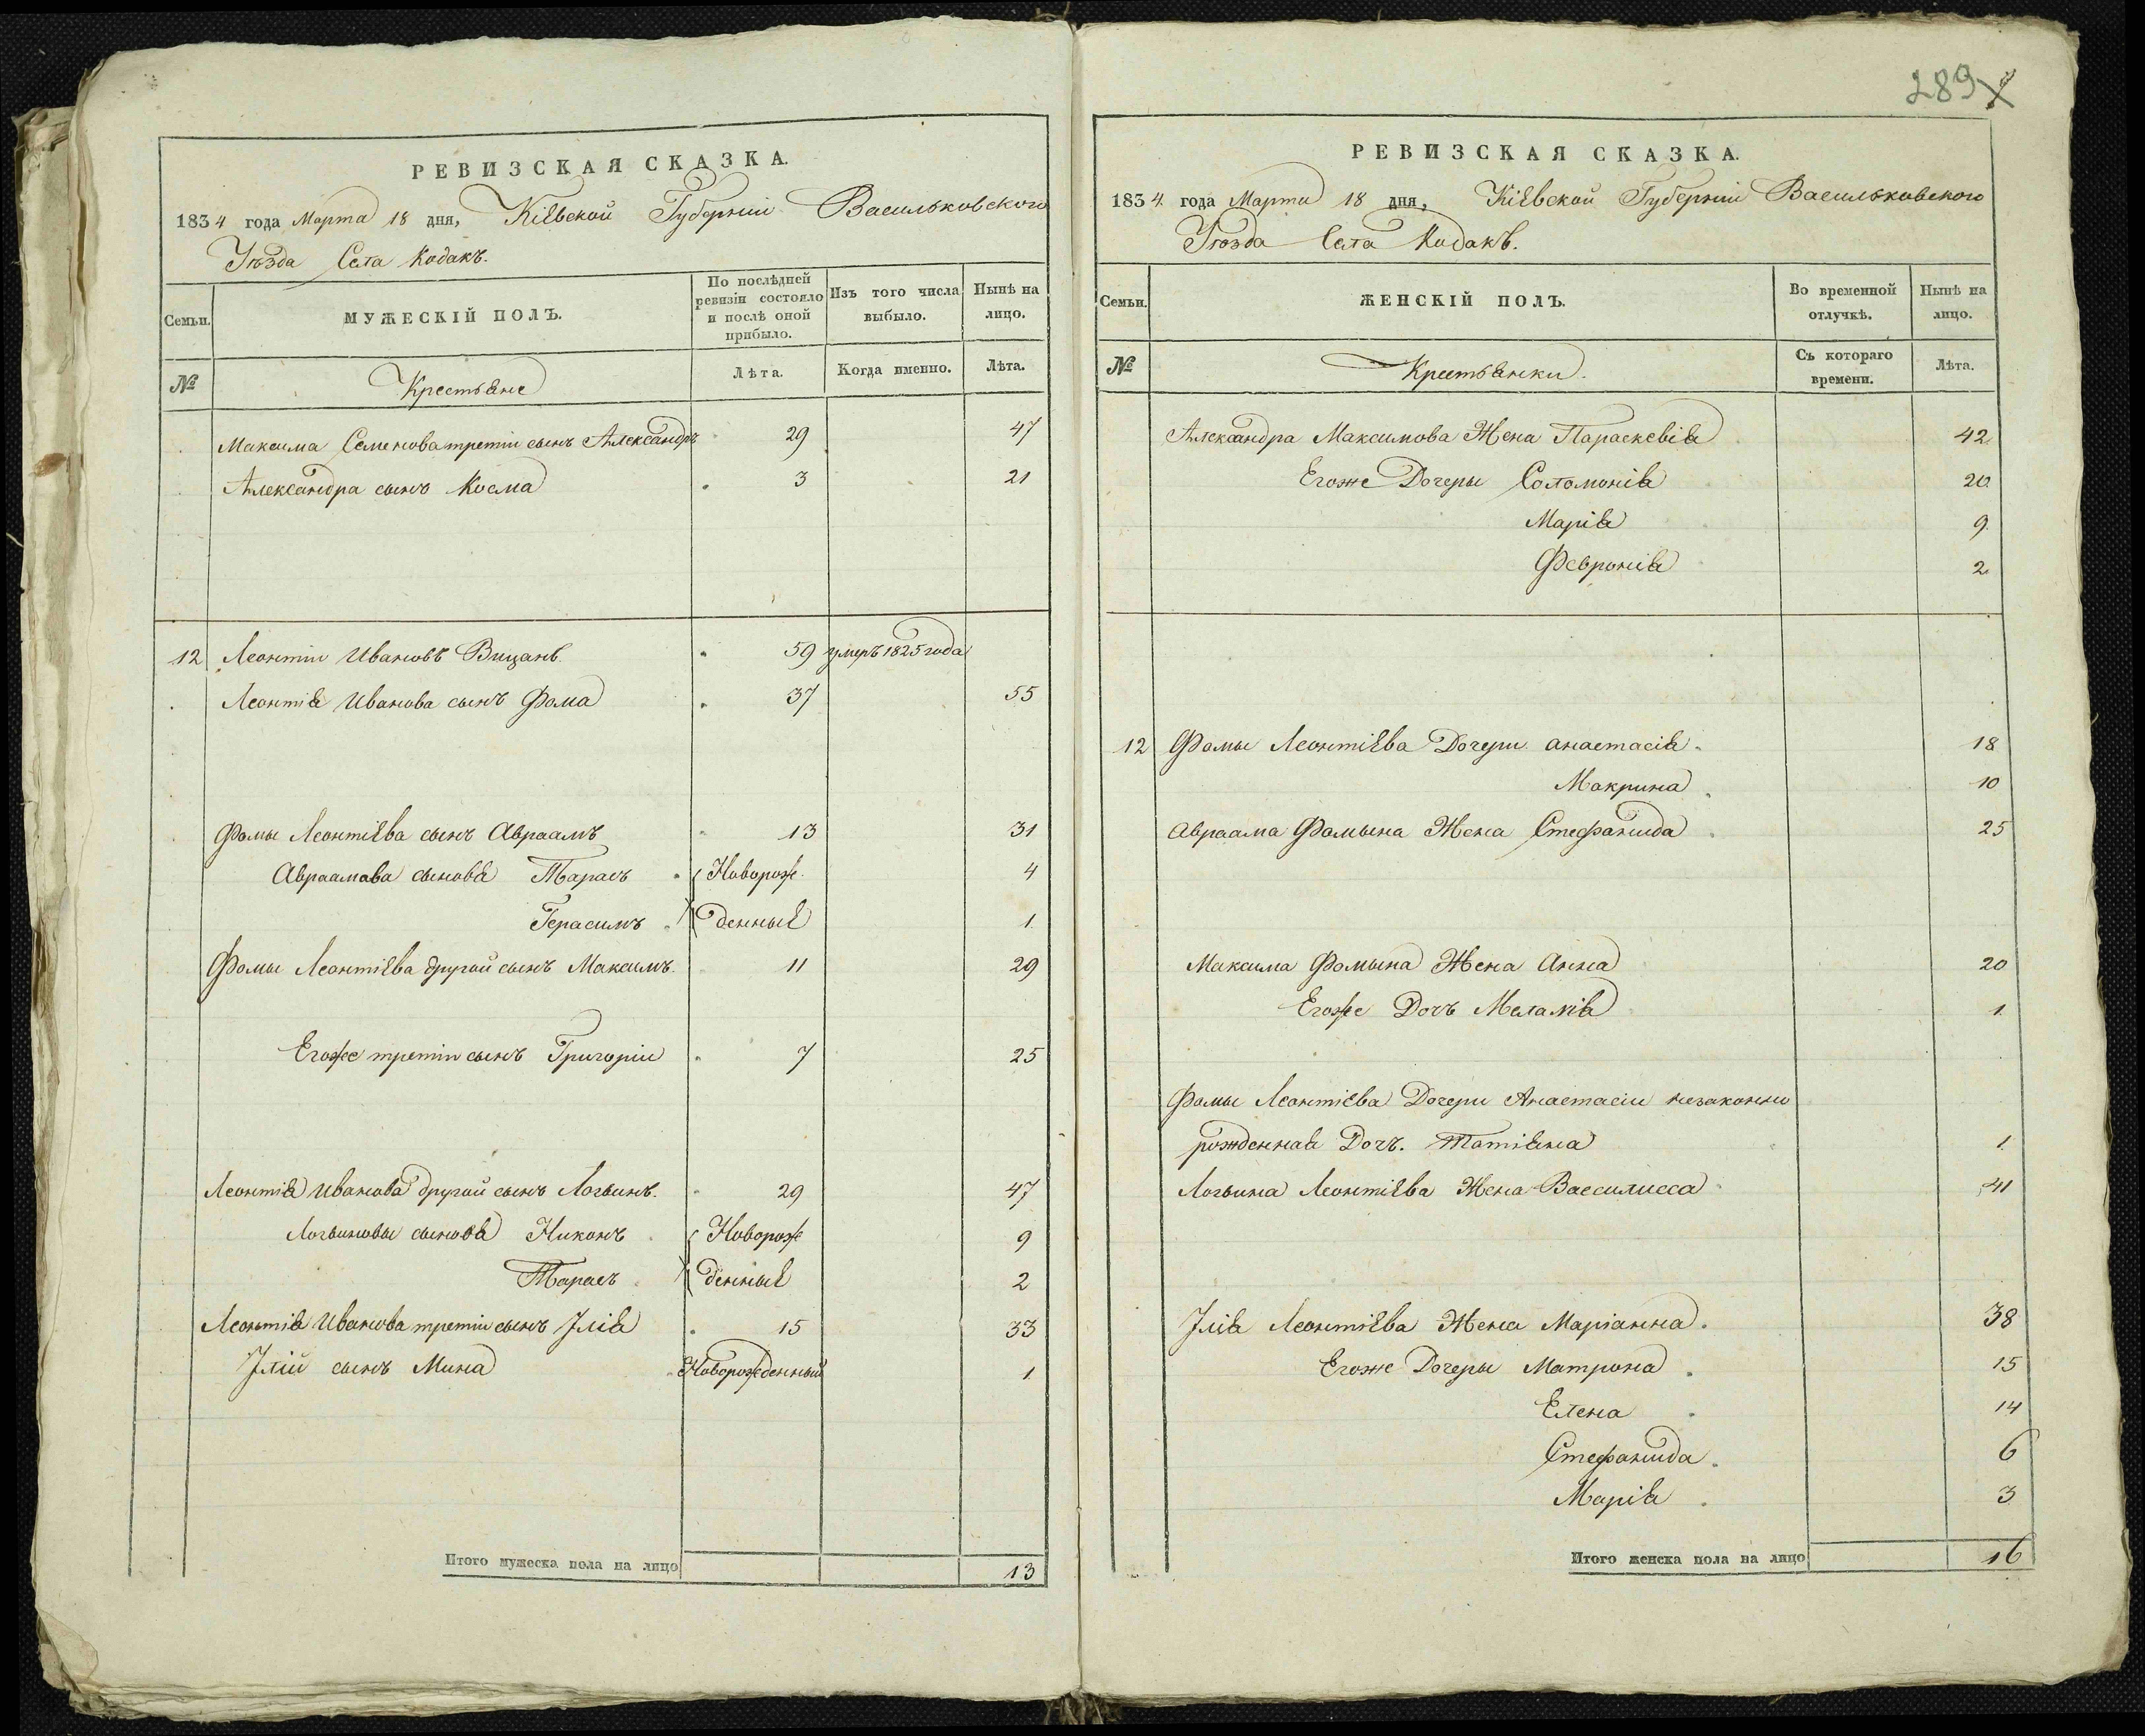 289
РЕВИЗСКАЯ СКАЗКА.
1834 года Марта 18 дня, Кіевской Губерніи Васильковского
Уѣзда Села Кодакъ.
Семьи.
МУЖЕСКІЙ ПОЛЪ.
По послѣдней ревизіи состояло и послѣ оной прибыло.
Изъ того числа выбыло.
Нынѣ на лицо.
№
Крестьяне
Лѣта.
Когда именно.
Лѣта.
Максима Семенова третіи сынъ Александръ 29 47
Александра сынъ Косма 3 21
12 Леонтіи Ивановъ Вицанъ 59 умеръ 1825 года
Леонтія Иванова сынъ Фома 37 55
Фомы Леонтіева сынъ Авраамъ 13 31
Авраамова сыновя Тарасъ Новорож 4
Герасимъ денные 1
Фомы Леонтіева другой сынъ Максимъ 11 29
Егоже третіи сынъ Григоріи 7 25
Леонтія Иванова другой сынъ Логвинъ 29 47
Логвиновы сыновя Никонъ Новорож 9
Тарасъ денные 2
Леонтія Иванова третіи сынъ Ілія 15 33
Іліи сынъ Мина Новорожденный 1
Итого мужеска пола на лицо 13
РЕВИЗСКАЯ СКАЗКА.
1834 года Марта 18 дня, Кіевской Губерніи Васильковского
Уѣзда Села Кодакъ.
Семьи.
ЖЕНСКІЙ ПОЛЪ.
Во временной отлучкѣ.
Нынѣ на лицо.
№
Крестьянки.
Съ котораго времени.
Лѣта.
Александра Максимова Жена Параскевія 42
Егоже Дочеры Соломонія 20
Марія 9
Февронія 2
12 Фомы Леонтіева Дочери Анастасія 18
Макрина 10
Авраама Фомына Жена Стефанида 25
Максима Фомына Жена Анна 20
Егоже Дочъ Меланія 1
Фомы Леонтіева Дочери Анастасіи незаконно
рожденная Дочъ. Татіяна 1
Логвина Леонтіева Жена Васслисса 41
Ілія Леонтіева Жена Маріанна 38
Егоже Дочеры Матрона 15
Елена 14
Стефанида 6
Марія 3
Итого женска пола на лицо 16